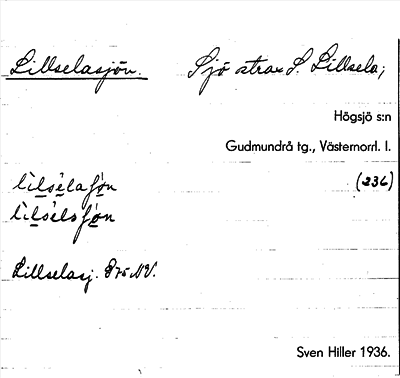 Lillselasjön. Sjö strax S. Lillsela;
Högsjö s:n
Gudmundrå tg., Västernorrl. l.
(236)
Lillselasj. 875 NV.
Sven Hiller 1936.